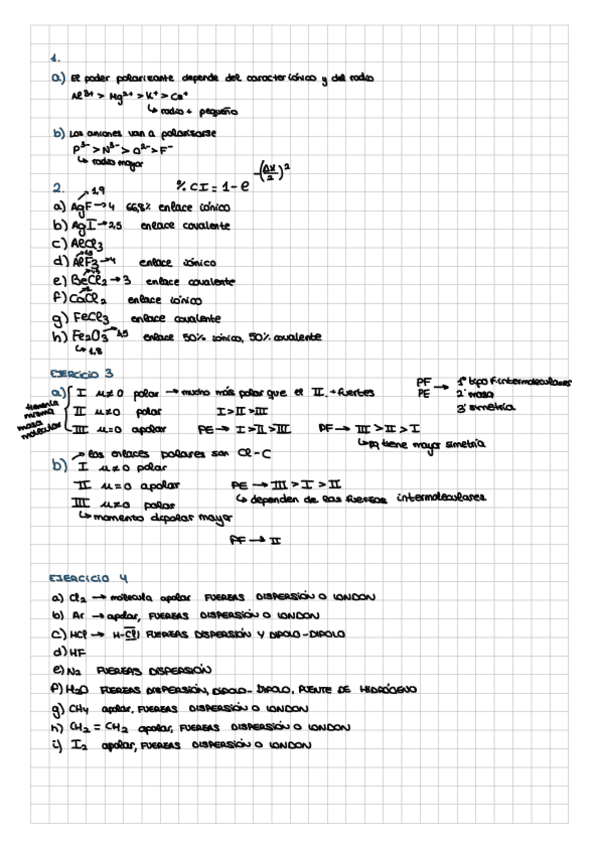 1.
a) El poder polarizante depende del carácter iónico y del radio
Al³⁺ > Mg²⁺ > K⁺ > Ca⁺
↳ radio + pequeño
b) Los aniones van a polarizarse
P³⁻ > N³⁻ > O²⁻ > F⁻
↳ radio mayor
2. 1,9 % CI = 1 - e^-(ΔX/2)²
a) AgF → 4 66,8% enlace iónico
b) AgI → 2,5 enlace covalente
c) AlCl₃
d) AlF₃ → 4 enlace iónico
e) BeCl₂ → 3 enlace covalente
f) CaCl₂ enlace iónico
g) FeCl₃ enlace covalente
h) Fe₂O₃ → 3,5 enlace 50% iónico, 50% covalente
↳ 1,8
EJERCICIO 3
a) I μ≠0 polar → mucho más polar que el II. + fuertes
tienen la misma masa molecular
II μ≠0 polar I > II > III
III μ=0 apolar PE → I > II > III PF → III > II > I
↳ pq tiene mayor simetría
PF PE → 1º tipo f. intermoleculares
2º masa
3º simetría
b) → los enlaces polares son Cl - C
I μ≠0 polar
II μ=0 apolar PE → III > I > II
III μ≠0 polar ↳ dependen de las fuerzas intermoleculares
↳ momento dipolar mayor
PF → II
EJERCICIO 4
a) Cl₂ → molécula apolar FUERZAS DISPERSIÓN O LONDON
b) Ar → apolar, FUERZAS DISPERSIÓN O LONDON
c) HCl → H-Cl FUERZAS DISPERSIÓN Y DIPOLO-DIPOLO
d) HF
e) N₂ FUERZAS DISPERSIÓN
f) H₂O FUERZAS DISPERSIÓN, DIPOLO-DIPOLO, PUENTE DE HIDRÓGENO
g) CH₄ apolar, FUERZAS DISPERSIÓN O LONDON
h) CH₂ = CH₂ apolar, FUERZAS DISPERSIÓN O LONDON
i) I₂ apolar, FUERZAS DISPERSIÓN O LONDON